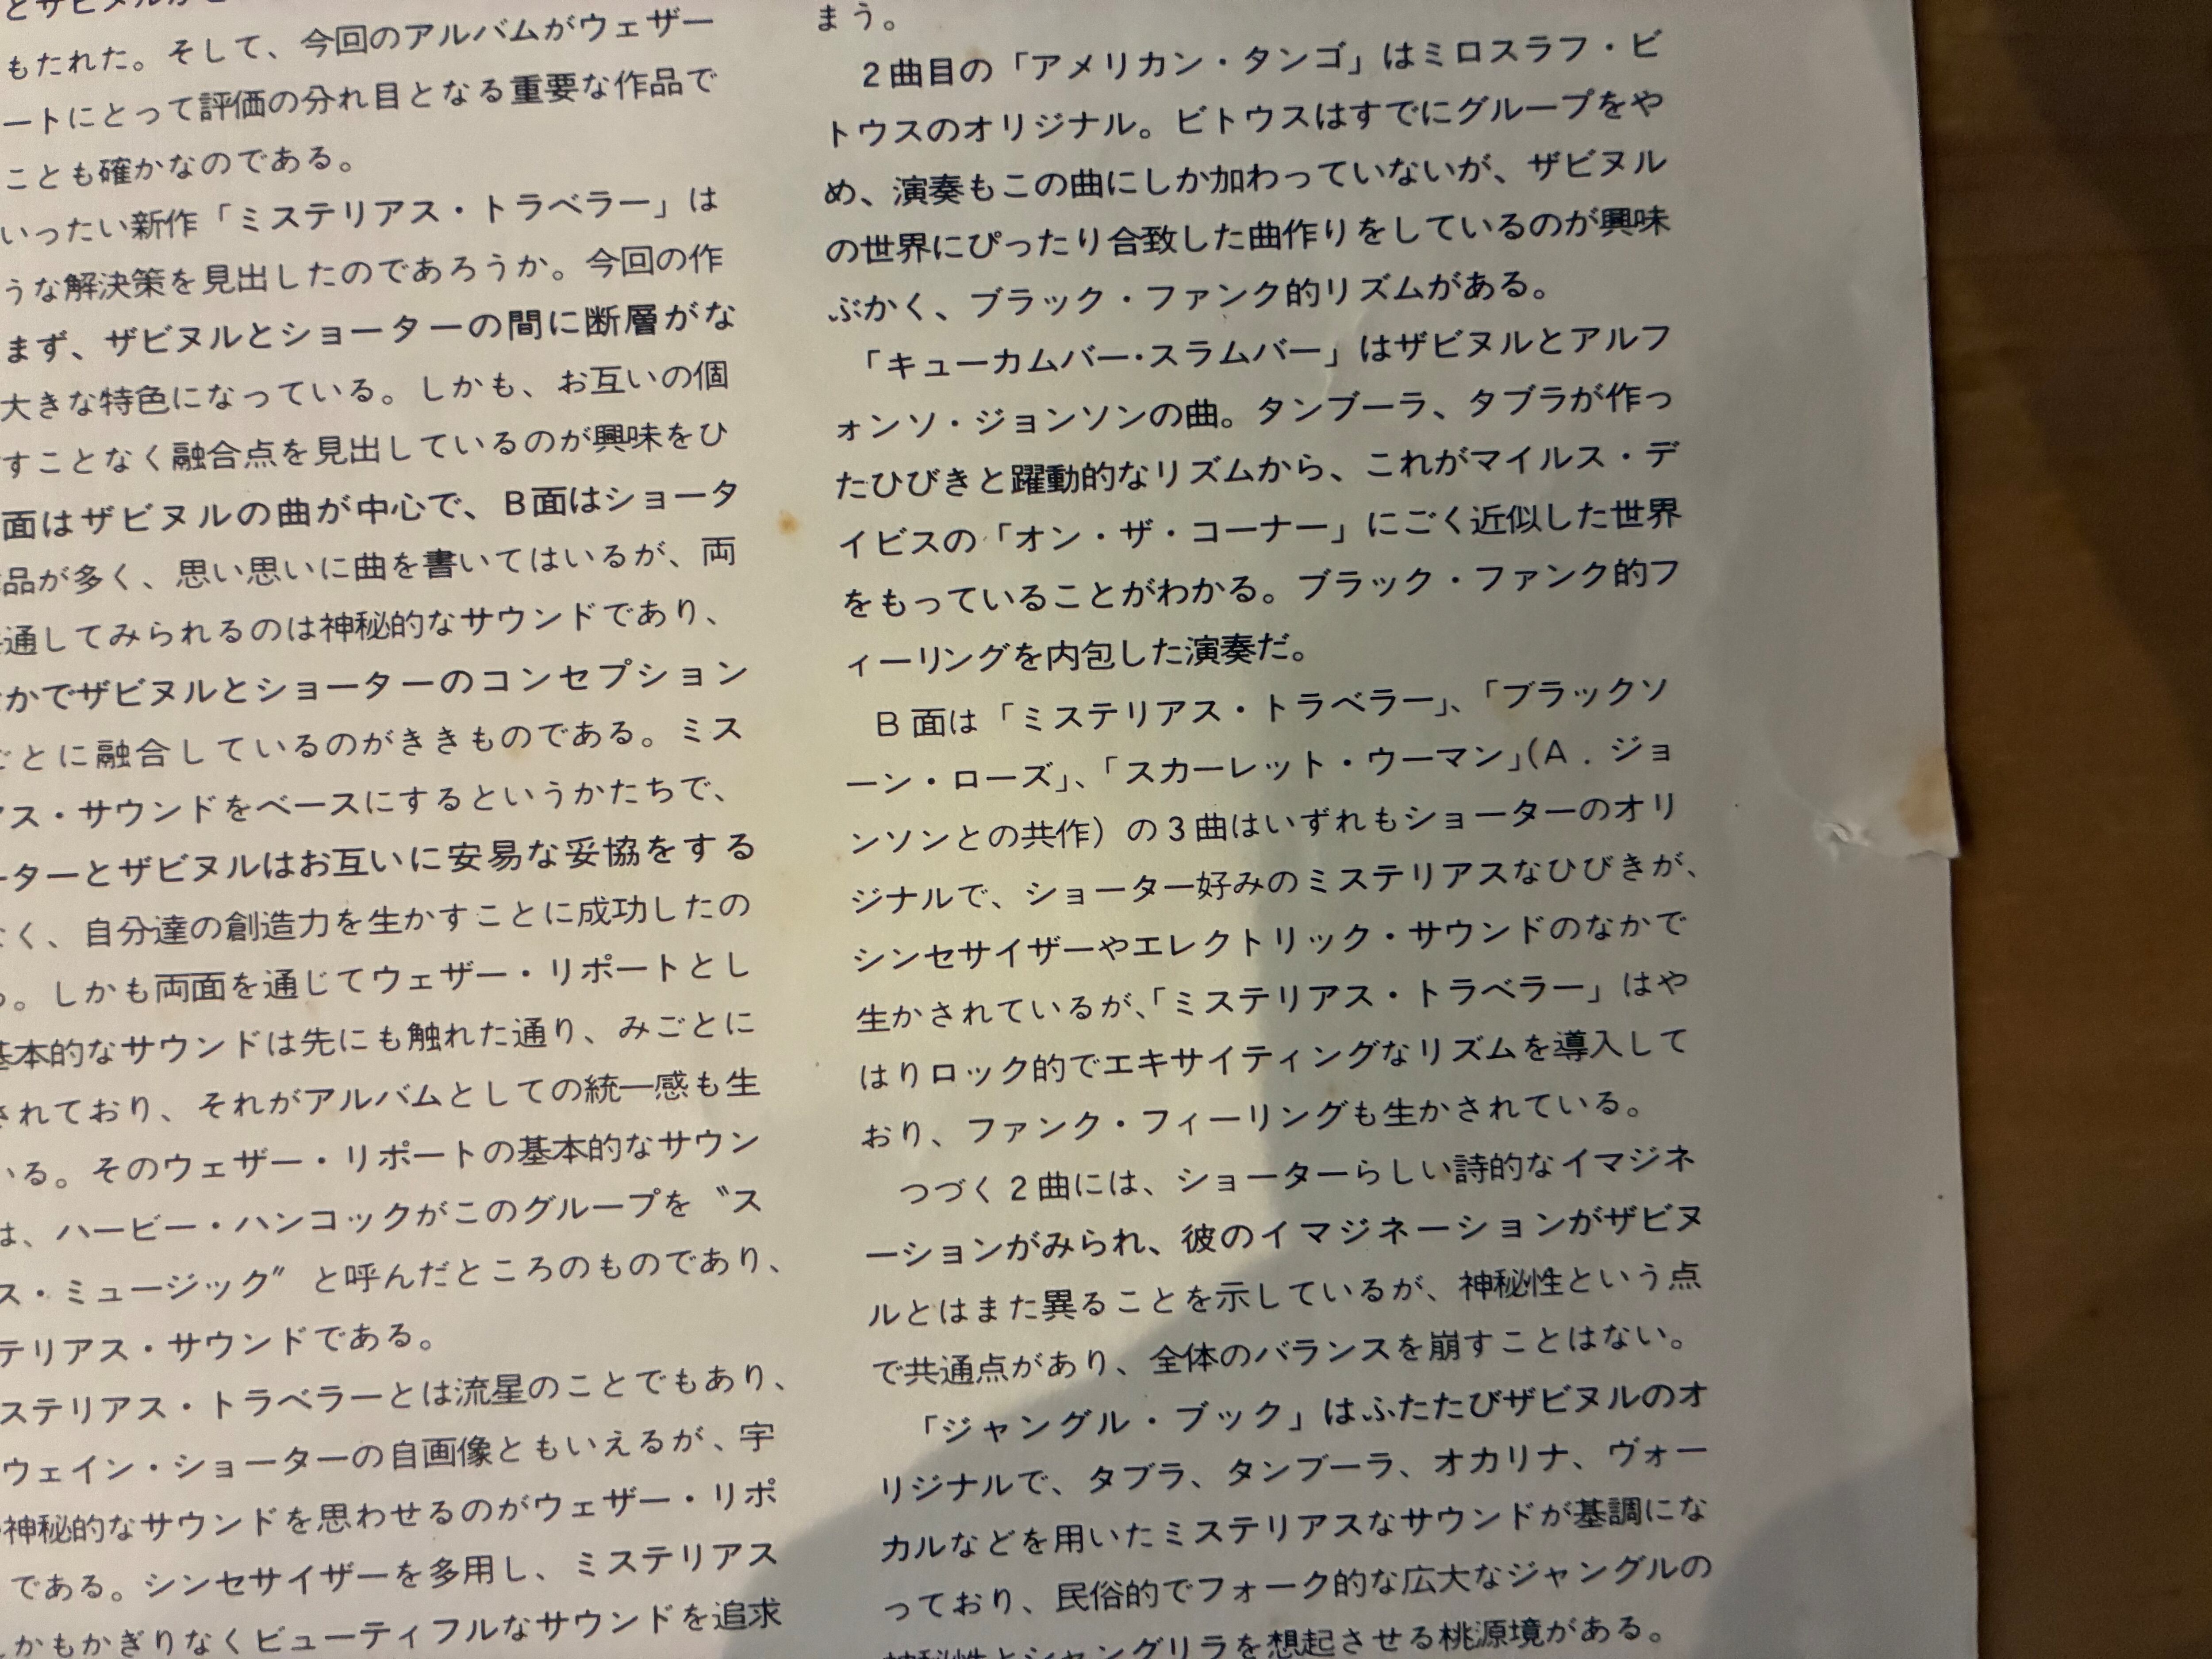 もたれた。そして、今回のアルバムがウェザー
ートにとって評価の分れ目となる重要な作品で
ことも確かなのである。
いったい新作「ミステリアス・トラベラー」は
うな解決策を見出したのであろうか。今回の作
まず、ザビヌルとショーターの間に断層がな
大きな特色になっている。しかも、お互いの個
すことなく融合点を見出しているのが興味をひ
面はザビヌルの曲が中心で、B面はショータ
品が多く、思い思いに曲を書いてはいるが、両
通してみられるのは神秘的なサウンドであり、
かでザビヌルとショーターのコンセプション
ごとに融合しているのがききものである。ミス
アス・サウンドをベースにするというかたちで、
ーターとザビヌルはお互いに安易な妥協をする
なく、自分達の創造力を生かすことに成功したの
。しかも両面を通じてウェザー・リポートとし
基本的なサウンドは先にも触れた通り、みごとに
されており、それがアルバムとしての統一感も生
いる。そのウェザー・リポートの基本的なサウン
は、ハービー・ハンコックがこのグループを〝ス
ス・ミュージック〞と呼んだところのものであり、
テリアス・サウンドである。
ステリアス・トラベラーとは流星のことでもあり、
ウェイン・ショーターの自画像ともいえるが、宇
神秘的なサウンドを思わせるのがウェザー・リポ
である。シンセサイザーを多用し、ミステリアス
しかもかぎりなくビューティフルなサウンドを追求
まう。
2曲目の「アメリカン・タンゴ」はミロスラフ・ビ
トウスのオリジナル。ビトウスはすでにグループをや
め、演奏もこの曲にしか加わっていないが、ザビヌル
の世界にぴったり合致した曲作りをしているのが興味
ぶかく、ブラック・ファンク的リズムがある。
「キューカムバー・スラムバー」はザビヌルとアルフ
ォンソ・ジョンソンの曲。タンブーラ、タブラが作っ
たひびきと躍動的なリズムから、これがマイルス・デ
イビスの「オン・ザ・コーナー」にごく近似した世界
をもっていることがわかる。ブラック・ファンク的フ
ィーリングを内包した演奏だ。
B面は「ミステリアス・トラベラー」、「ブラックソ
ーン・ローズ」、「スカーレット・ウーマン」(A.ジョ
ンソンとの共作）の3曲はいずれもショーターのオリ
ジナルで、ショーター好みのミステリアスなひびきが、
シンセサイザーやエレクトリック・サウンドのなかで
生かされているが、「ミステリアス・トラベラー」はや
はりロック的でエキサイティングなリズムを導入して
おり、ファンク・フィーリングも生かされている。
つづく2曲には、ショーターらしい詩的なイマジネ
ーションがみられ、彼のイマジネーションがザビヌ
ルとはまた異ることを示しているが、神秘性という点
で共通点があり、全体のバランスを崩すことはない。
「ジャングル・ブック」はふたたびザビヌルのオ
リジナルで、タブラ、タンブーラ、オカリナ、ヴォー
カルなどを用いたミステリアスなサウンドが基調にな
っており、民俗的でフォーク的な広大なジャングルの
神秘性とシャングリラを想起させる桃源境がある。